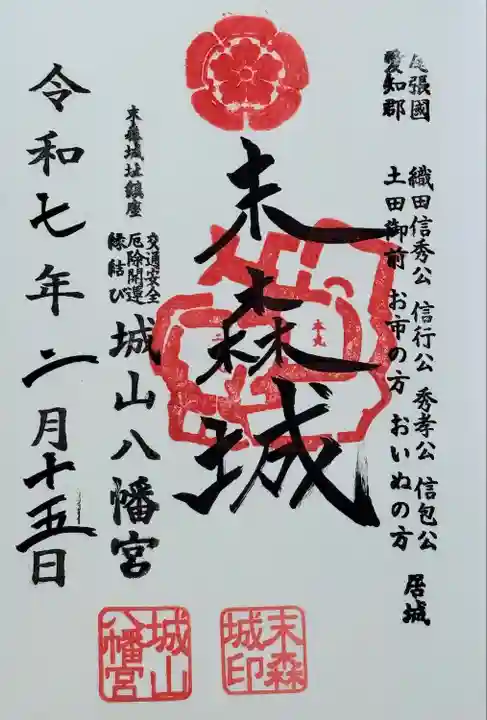 尾張國 織田信秀公 信行公 秀孝公 信包公 居城
愛知郡 土田御前 お市の方 おいぬの方
末森城
本丸
二
末森城址鎮座
交通安全
厄除開運
縁結び
城山八幡宮
令和七年二月十五日
末森
城印
城山
八幡宮